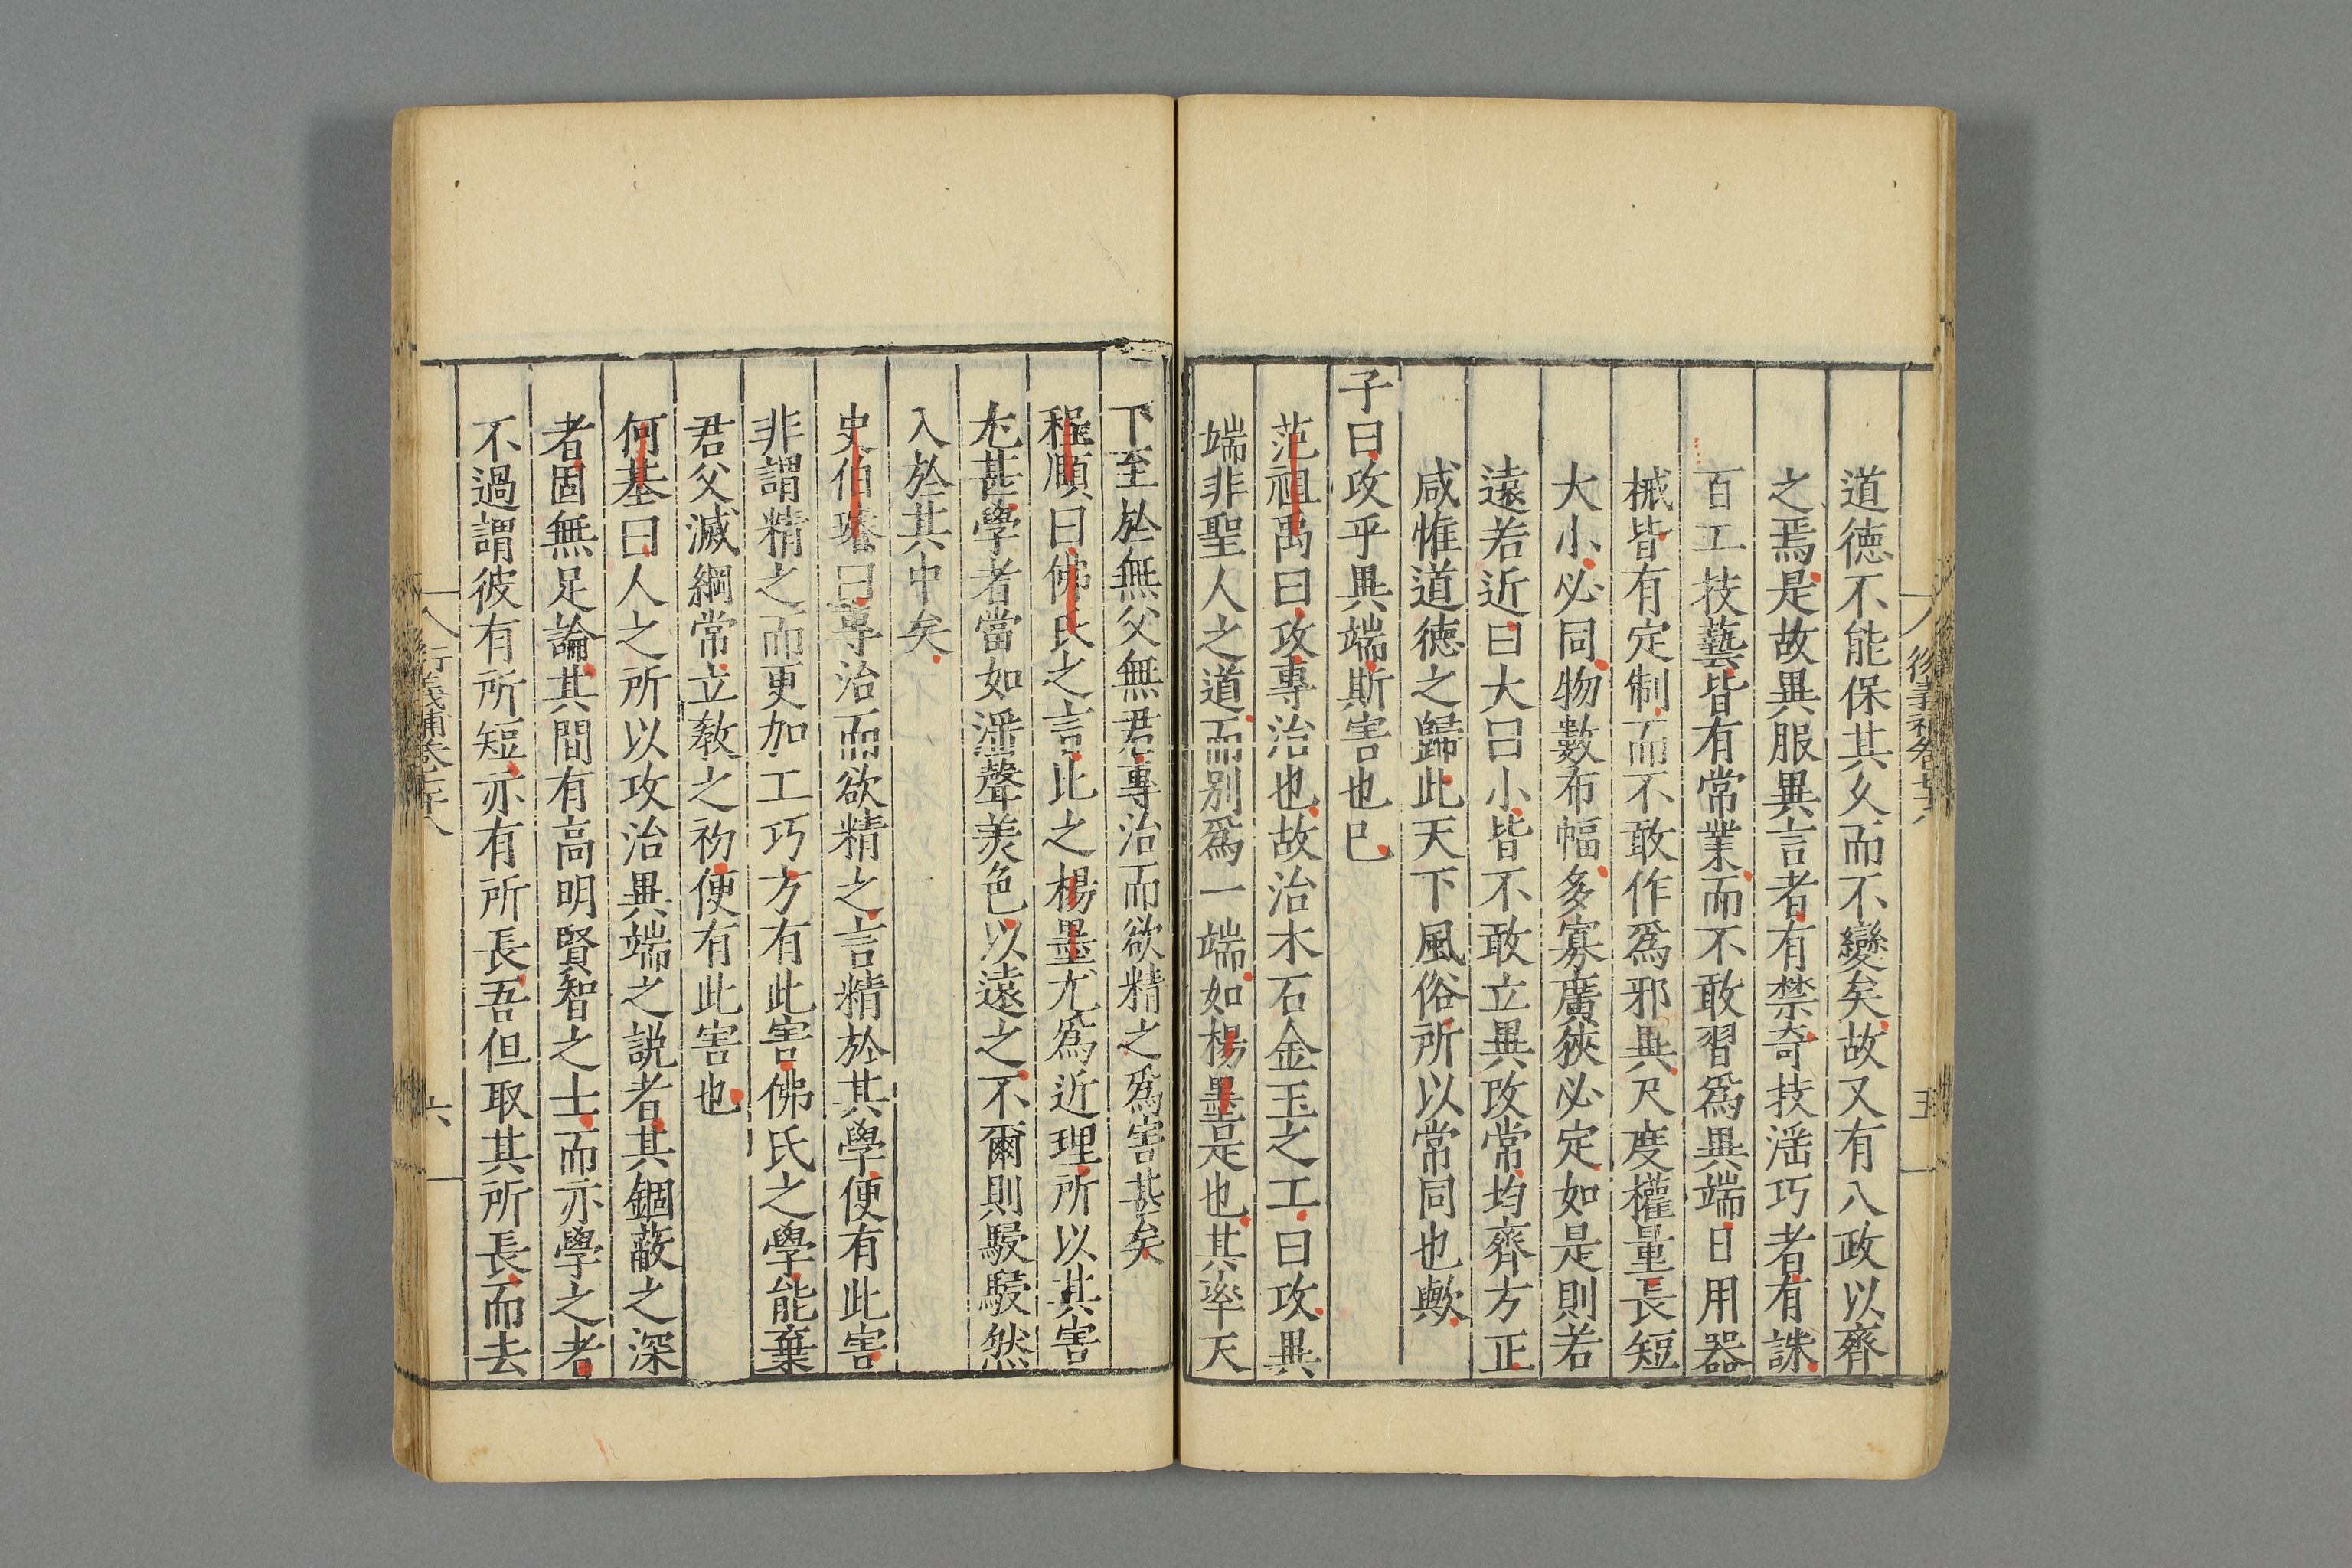 道德不能保其久而不變矣故又有八政以齊
之焉是故異服異言者有禁奇技滛巧者有誅
百工技藝皆有常業而不敢習爲異端日用器
械皆有定制而不敢作爲邪異尺度權量長短
大小必同物數布幅多寡廣狹必定如是則若
遠若近曰大曰小皆不敢立異攻常均齊方正
咸惟道德之歸此天下風俗所以常同也歟
子曰攻乎異端斯害也已
范祖禹曰攻專治也故治木石金玉之工曰攻異
端非聖人之道而別爲一端如楊墨是也其率天
下至於無父無君專治而欲精之爲害甚矣
程頤曰佛氏之言比之楊墨尤爲近理所以其害
尤甚學者當如滛聲美色以遠之不爾則駸駸然
入於其中矣
史伯璿曰專治而欲精之言精於其學便有此害
非謂精之而更加工巧方有此害佛氏之學能棄
君父滅綱常立教之初便有此害也
何基曰人之所以攻治異端之說者其錮蔽之深
者固無足論其間有高明賢智之士而亦學之者
不過謂彼有所短亦有所長吾但取其所長而去
六